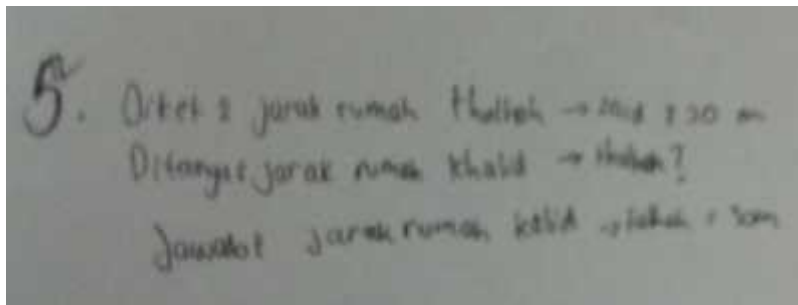 5. Diket : jarak rumah thalhah → zaid : 20 m
Ditanya : jarak rumah khalid → thalhah?
Jawab : jarak rumah kalid → =